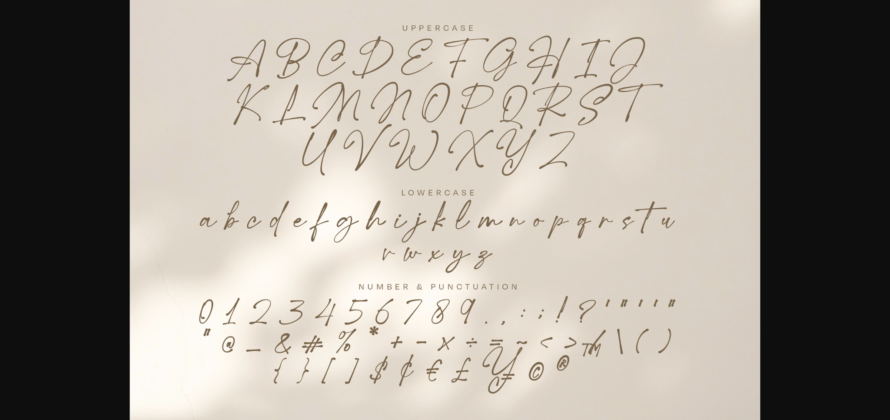 UPPERCASE
A B C D E F G H I J
K L M N O P Q R S T
U V W X Y Z
LOWERCASE
a b c d e f g h i j k l m n o p q r s t u
v w x y z
NUMBER & PUNCTUATION
0 1 2 3 4 5 6 7 8 9 . , : ; ! ? ' " ' ' "
" @ _ & # % * + - × ÷ = ~ < > ™ \ ( )
{ } [ ] $ ¢ € £ ¥ © ®